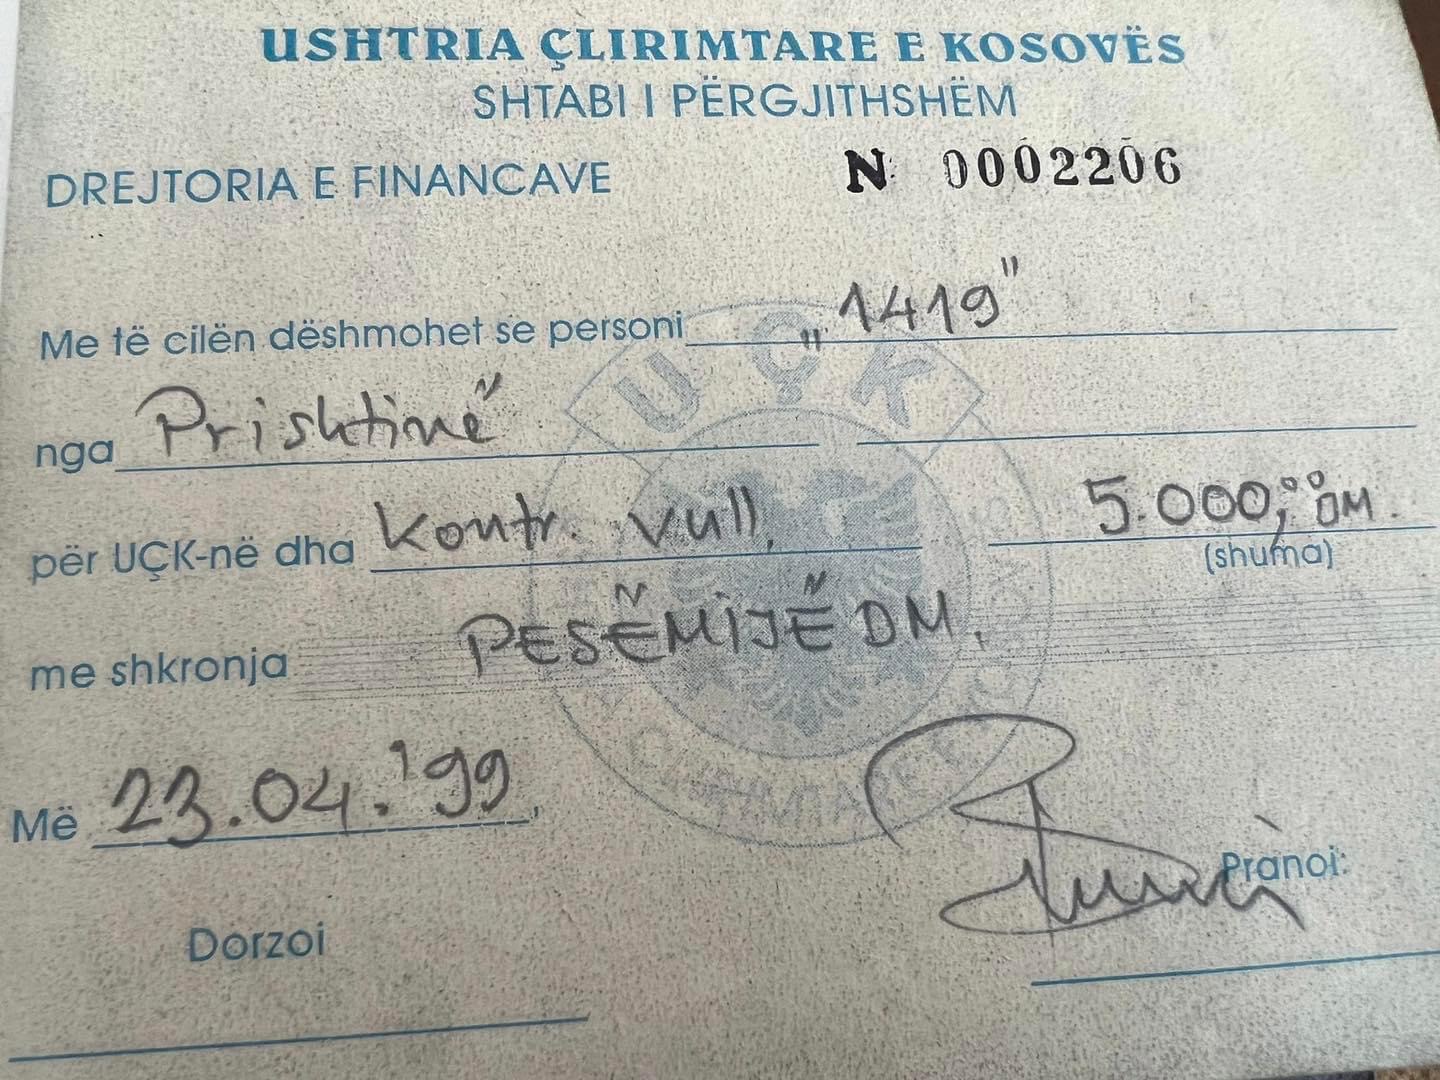 USHTRIA ÇLIRIMTARE E KOSOVËS
SHTABI I PËRGJITHSHËM
DREJTORIA E FINANCAVE N: 0002206
Me të cilën dëshmohet se personi „1419"
nga Prishtinë
UÇK
për UÇK-në dha Kontr. vull. 5.000,⁰⁰ DM.
(shuma)
me shkronja PESËMIJË DM.
Më 23.04.'99
Pranoi:
Dorzoi